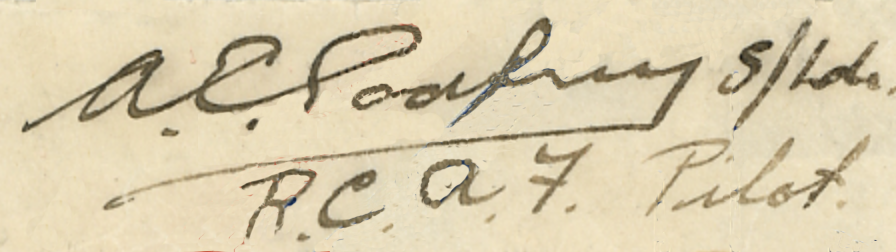 A. E. Godfrey S/Ldr.
R.C.A.F. Pilot.